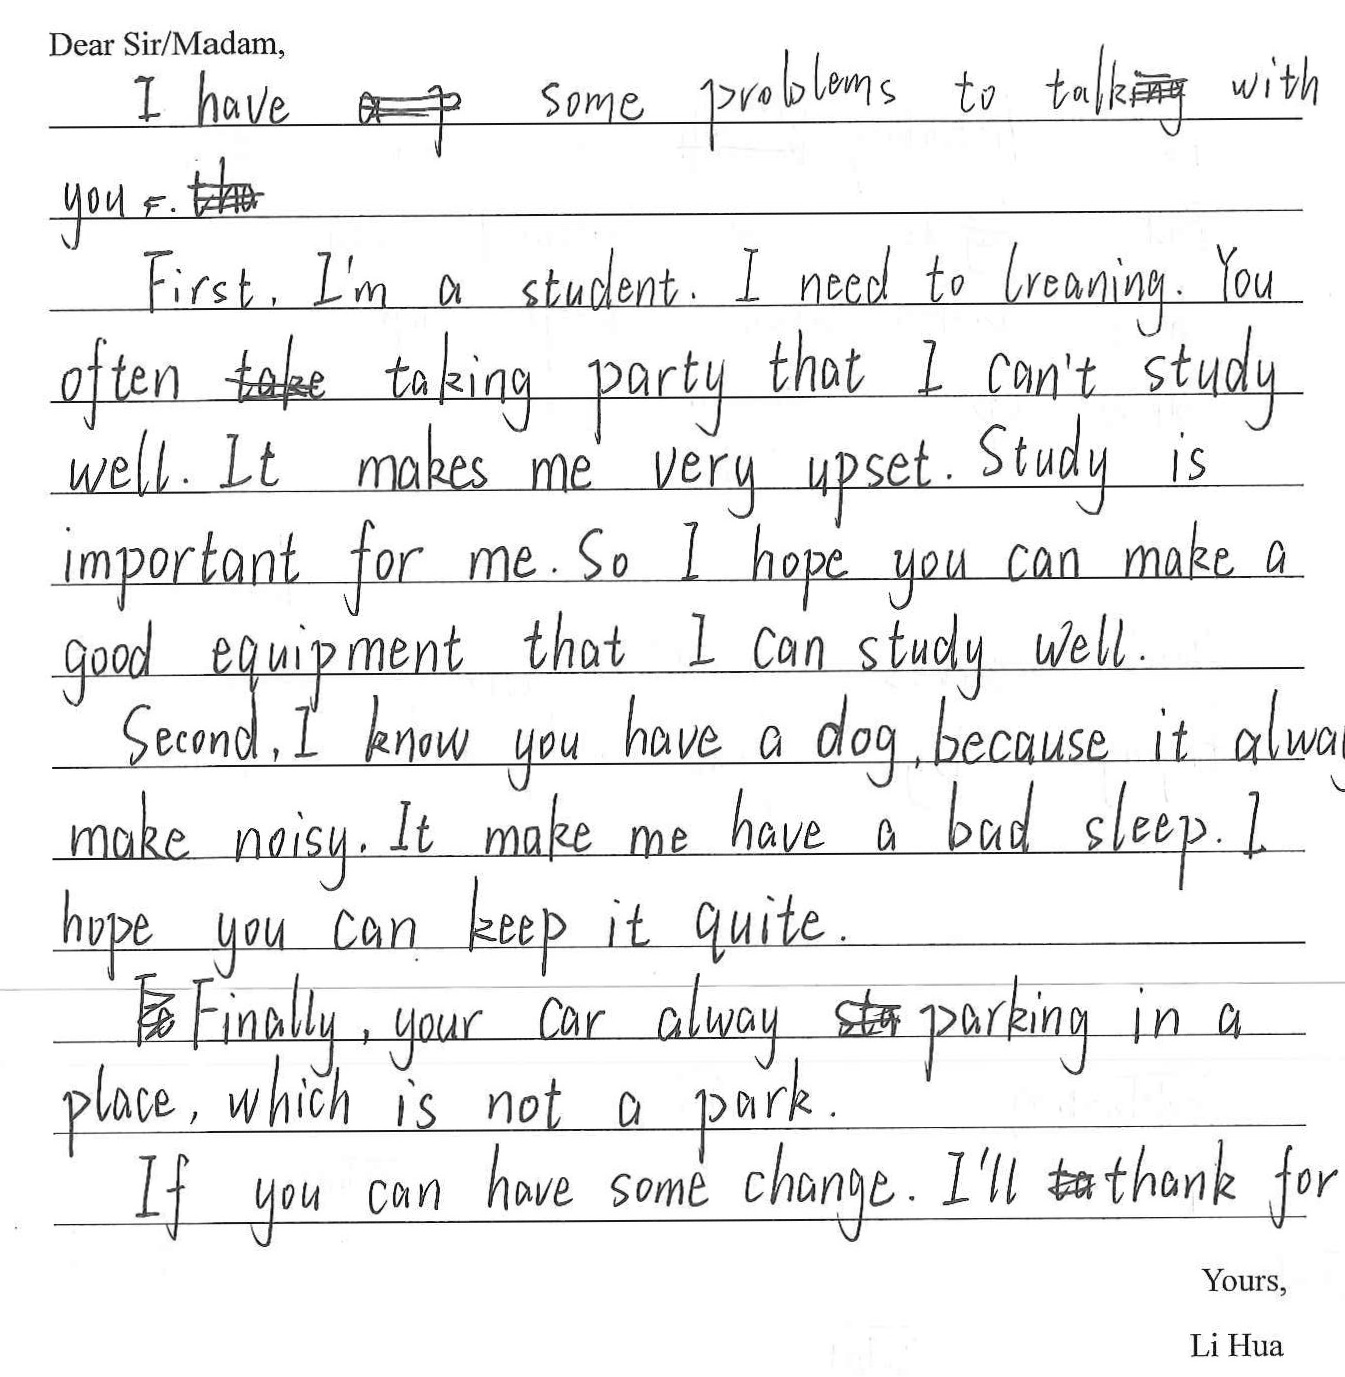 Dear Sir/Madam,
I have some problems to talk with
you.
First, I'm a student. I need to lreaning. You
often taking party that I can't study
well. It makes me very upset. Study is
important for me. So I hope you can make a
good equipment that I can study well.
Second, I know you have a dog, because it alway
make noisy. It make me have a bad sleep. I
hope you can keep it quite.
Finally, your car alway parking in a
place, which is not a park.
If you can have some change. I'll thank for
Yours,
Li Hua